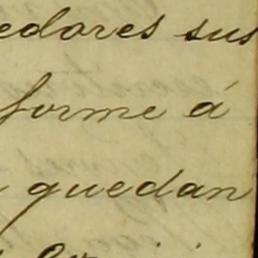 edores sus
forme á
quedan